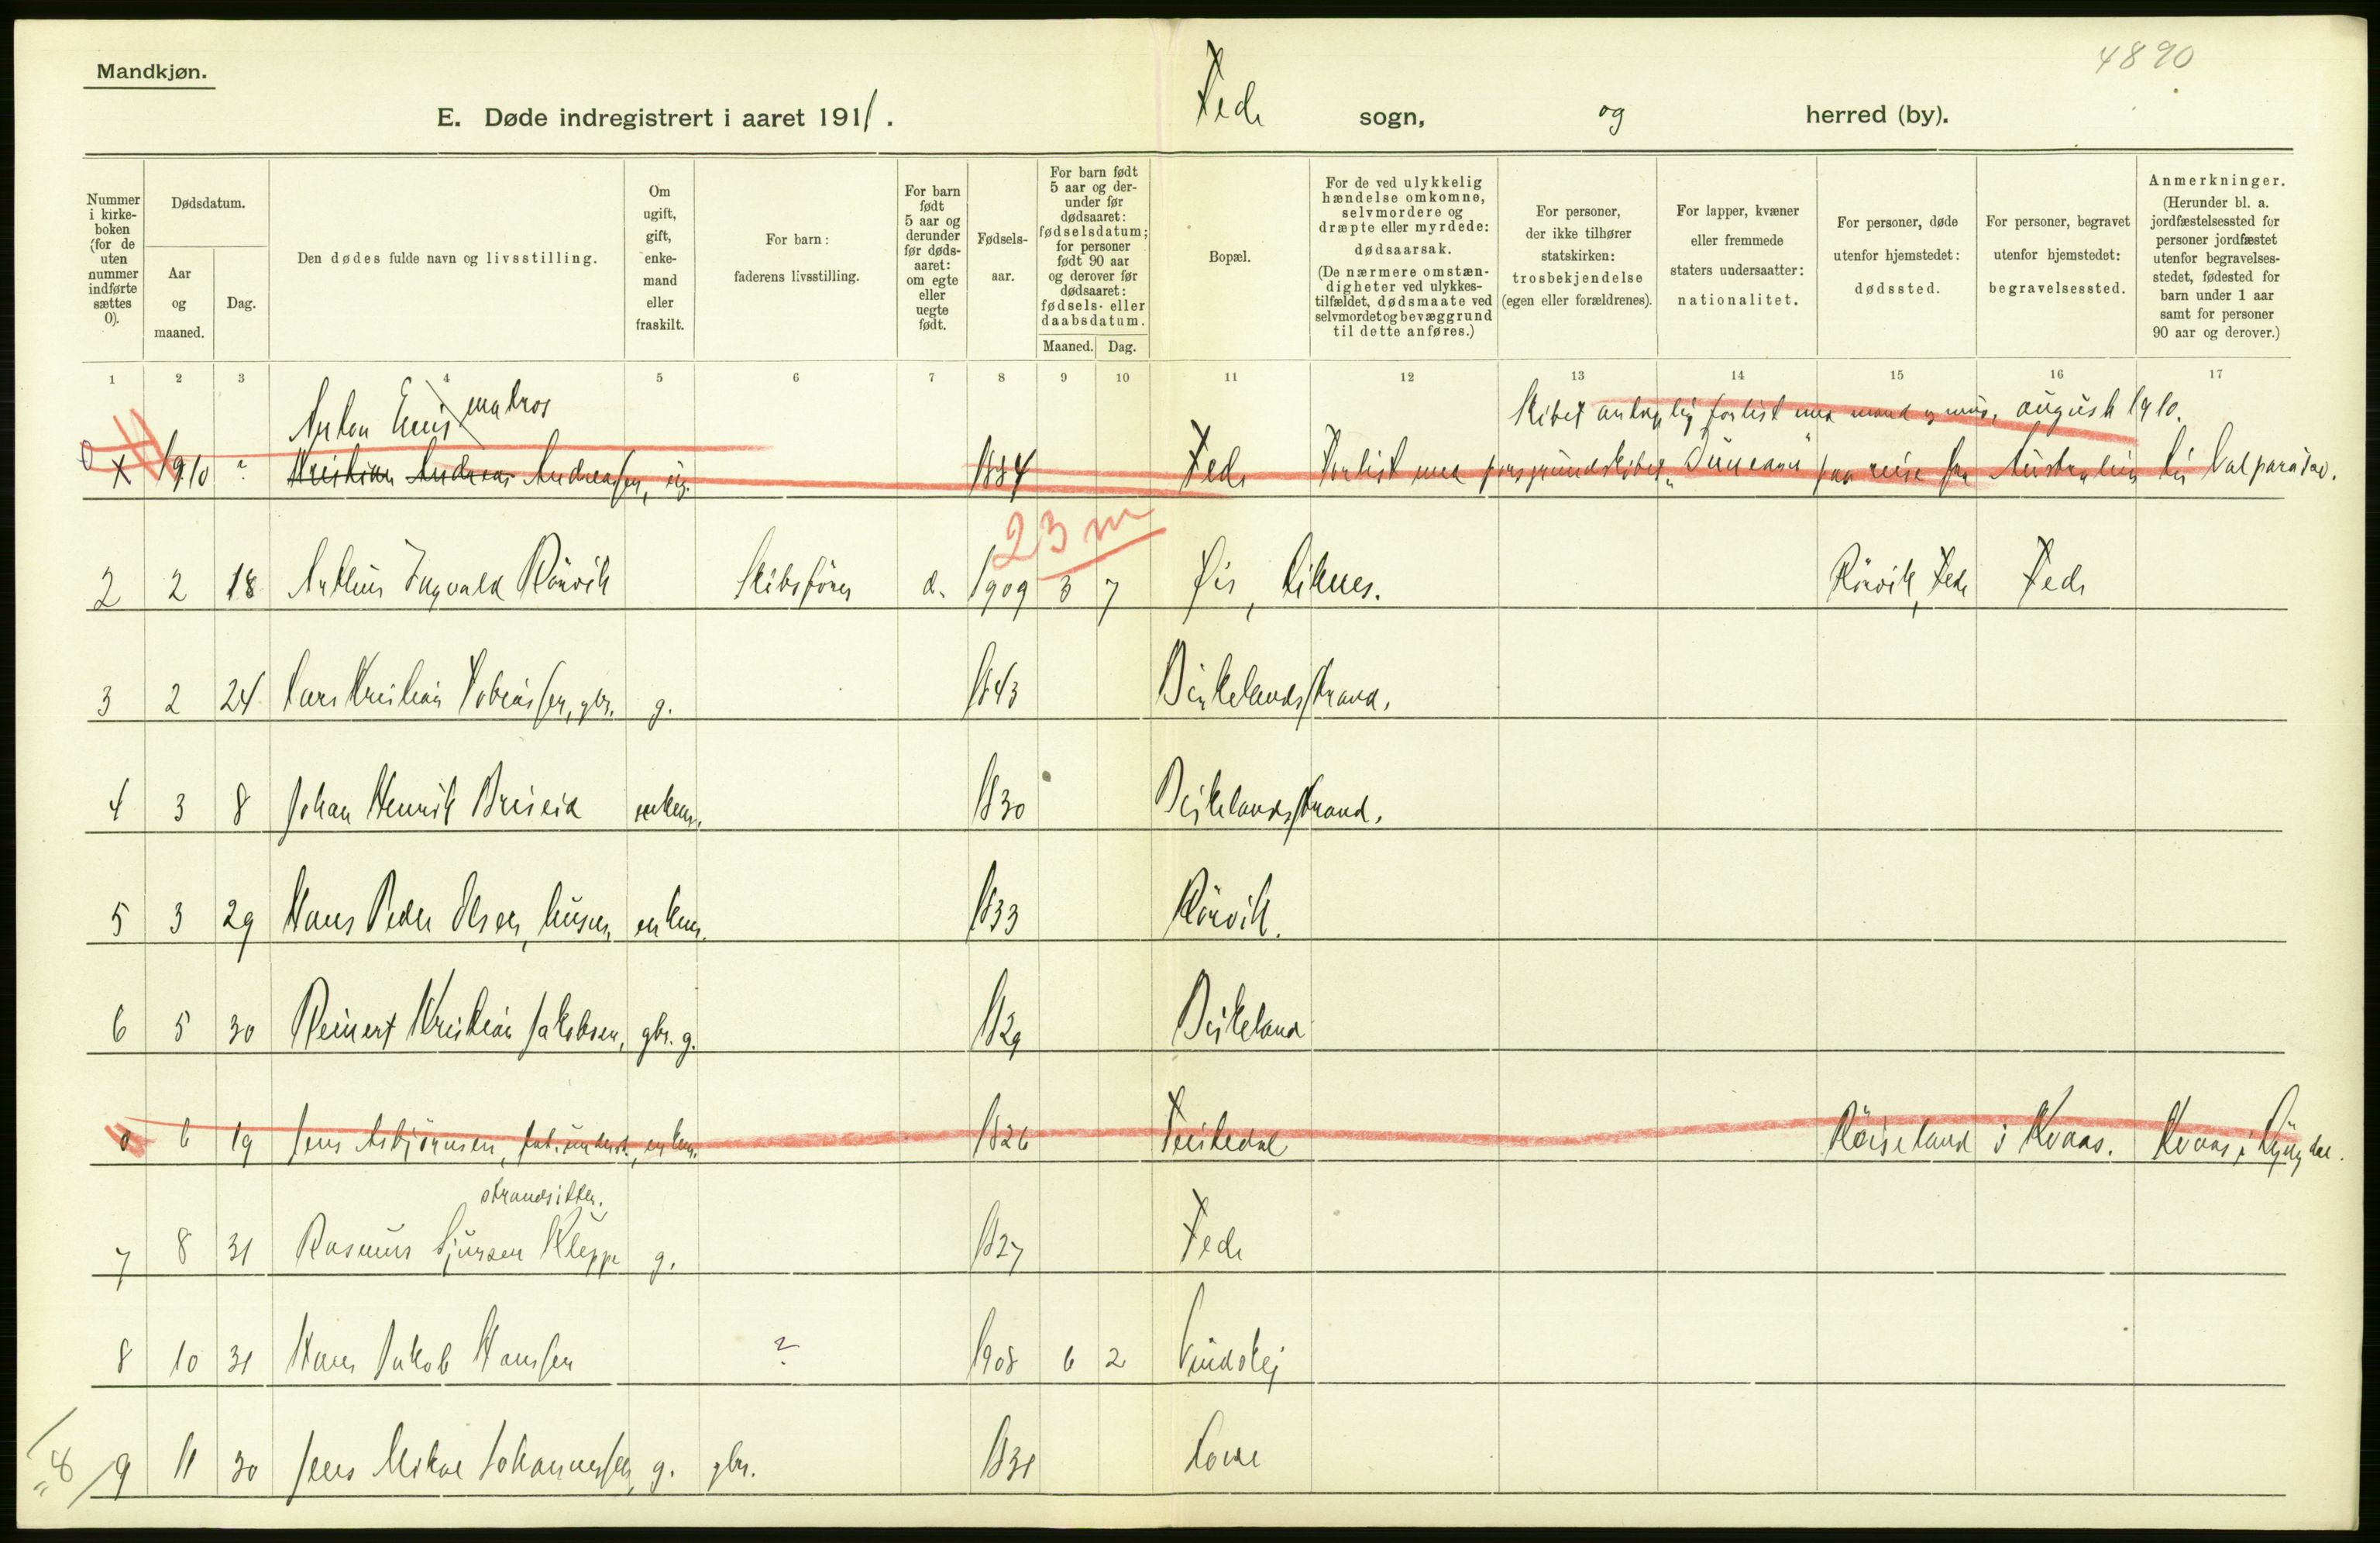 Mandkjøn.
4890
E. Døde indregistrert i aaret 1911. Fede sogn, og herred (by).
Nummer i kirke- boken (for de uten nummer indførte sættes 0).
Dødsdatum.
Aar og maaned.
Dag.
Den dødes fulde navn og livsstilling.
Om ugift, gift, enke- mand eller fraskilt.
For barn: faderens livsstilling.
For barn født 5 aar og derunder før døds- aaret: om egte eller uegte født.
Fødsels- aar.
For barn født 5 aar og der- under før dødsaaret: fødselsdatum; for personer født 90 aar og derover før dødsaaret: fødsels- eller daabsdatum.
Maaned. Dag.
Bopæl.
For de ved ulykkelig hændelse omkomne, selvmordere og dræpte eller myrdede: dødsaarsak. (De nærmere omstæn- digheter ved ulykkes- tilfældet, dødsmaate ved selvmordet og bevæggrund til dette anføres.)
For personer, der ikke tilhører statskirken: trosbekjendelse (egen eller forældrenes).
For lapper, kvæner eller fremmede staters undersaatter: nationalitet.
For personer, døde utenfor hjemstedet: dødssted.
For personer, begravet utenfor hjemstedet: begravelsessted.
Anmerkninger. (Herunder bl. a. jordfæstelsessted for personer jordfæstet utenfor begravelses- stedet, fødested for barn under 1 aar samt for personer 90 aar og derover.)
1 2 3 4 5 6 7 8 9 10 11 12 13 14 15 16 17
Anton Emil matros Skibet antagelig forlist med mand og mus, august 1910.
0 1910 ? Kristian Andreas Andreassen, ug. 1884 Fede Forlist med porsgrundskibet „Duncann" paa reise fra Australien til Valparaiso.
23 m
2 2 18 Arthur Ingvald Rörvik Skibsförer d. 1909 3 7 Öie, Liknes. Rörvik, Fede Fede
3 2 24 Lars Kristian Tobiassen, gbr. g. 1843 Birkelandsstrand.
4 3 8 Johan Henrik Briseid enkem. 1830 Birkelandsstrand.
5 3 29 Hans Peder Olsen, husm. enkem. 1833 Rörvik.
6 5 30 Reinert Kristian Jakobsen, gbr. g. 1829 Birkeland
0 6 19 Jens Asbjörnsen, fat. underst., enkem. 1826 Feiskedal Röiseland i Kvaas. Kvaas i Lyngdal.
strandsitter.
7 8 31 Rasmus Sjursen Kleppe g. 1827 Fede
8 10 31 Hans Jakob Hanssen ? 1908 6 2 Vindskej
„8 / 9 11 30 Jens Mikal Johannessen, g. gbr. 1831